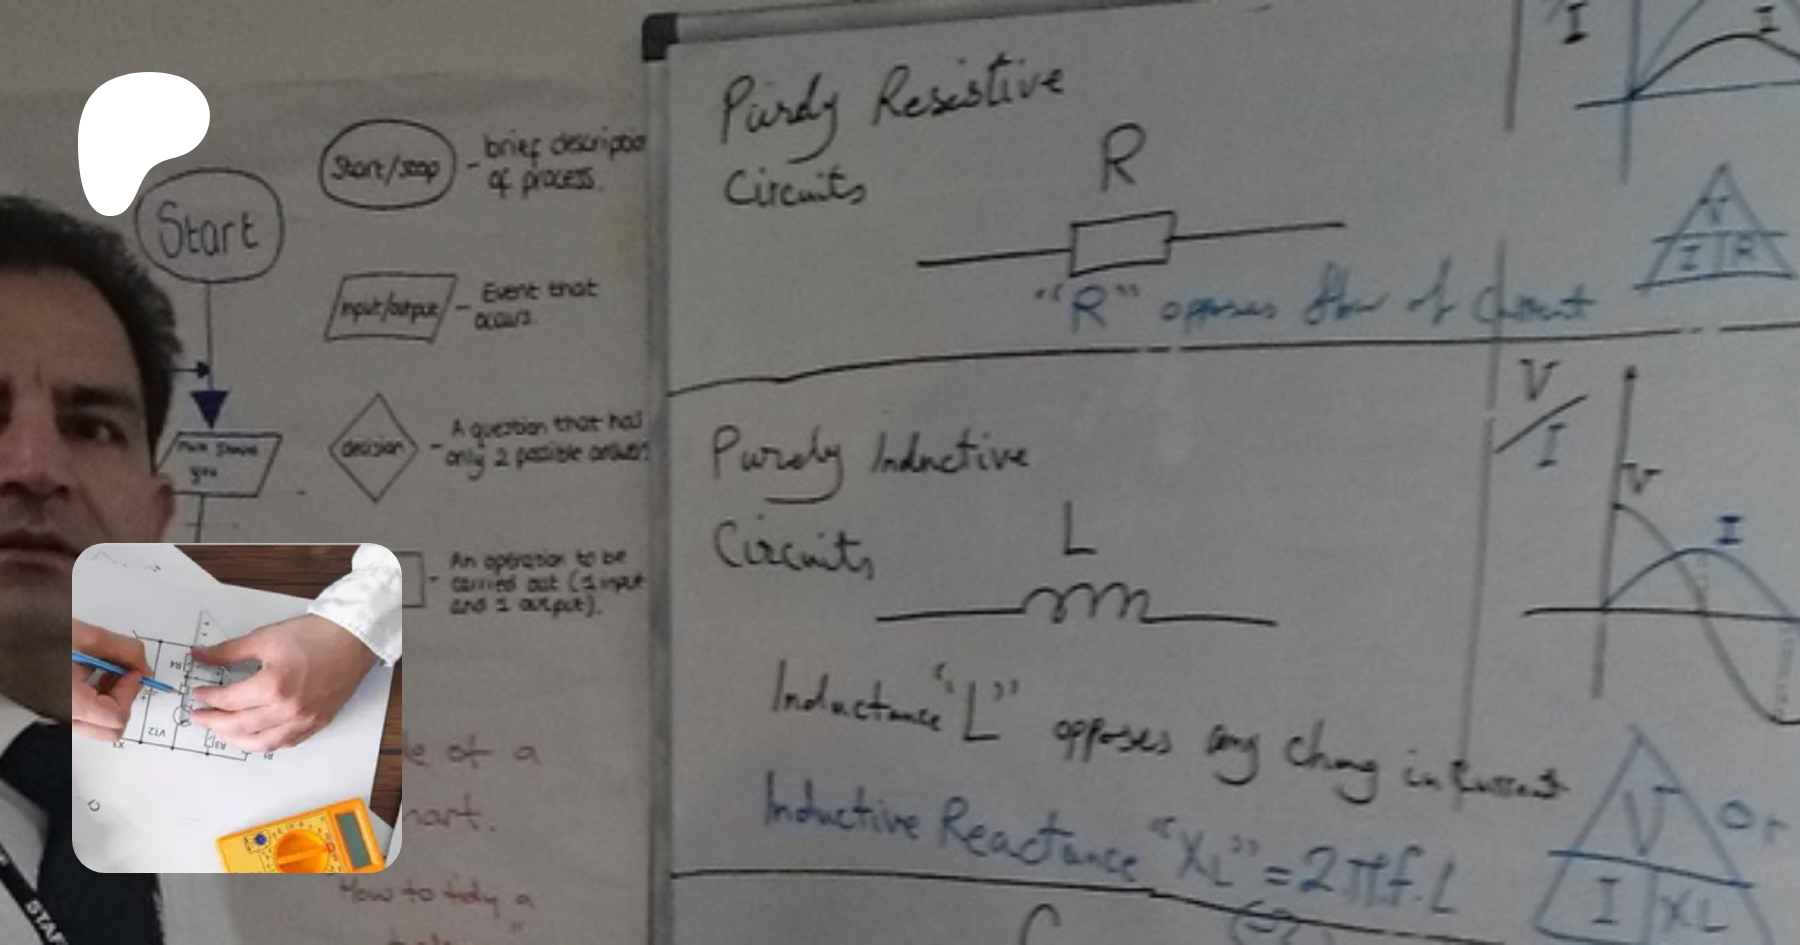 Start
Start/stop
- brief descriptio
of process.
input/output
- Event that
occurs.
decision
- A question that has
only 2 possible answers
you
- An operation to be
carried out (1 input
and 1 output).
le of a
hart.
How to tidy a
STAF
R4
VT2
R3
R1
X3
Purely Resistive
Circuits
R
"R" opposes flow of Current
I
I
V
I R
Purely Inductive
Circuits
L
Inductance "L" opposes any Chang in Current
Inductive Reactance "XL" = 2πf.L
V
I
V
I
V
or
I XL
C